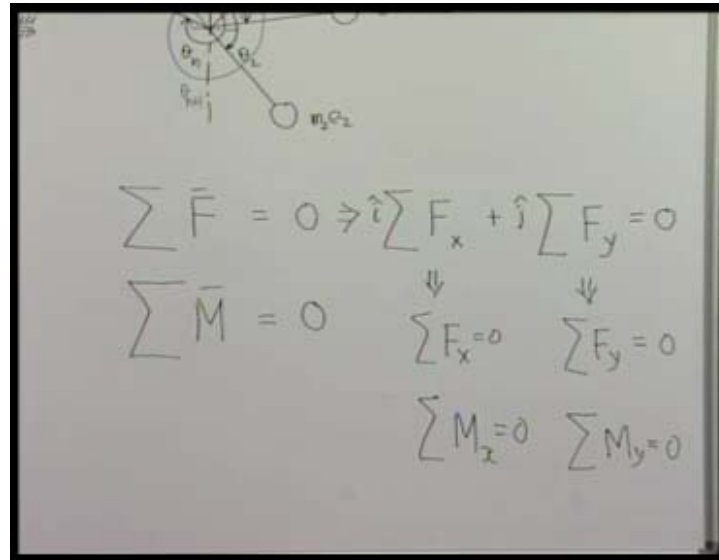 θₙ θ₂
m₂e₂
∑ F̄ = 0 ⇒ î ∑ Fₓ + ĵ ∑ F_y = 0
⇓ ⇓
∑ M̄ = 0 ∑ Fₓ = 0 ∑ F_y = 0
∑ Mₓ = 0 ∑ M_y = 0